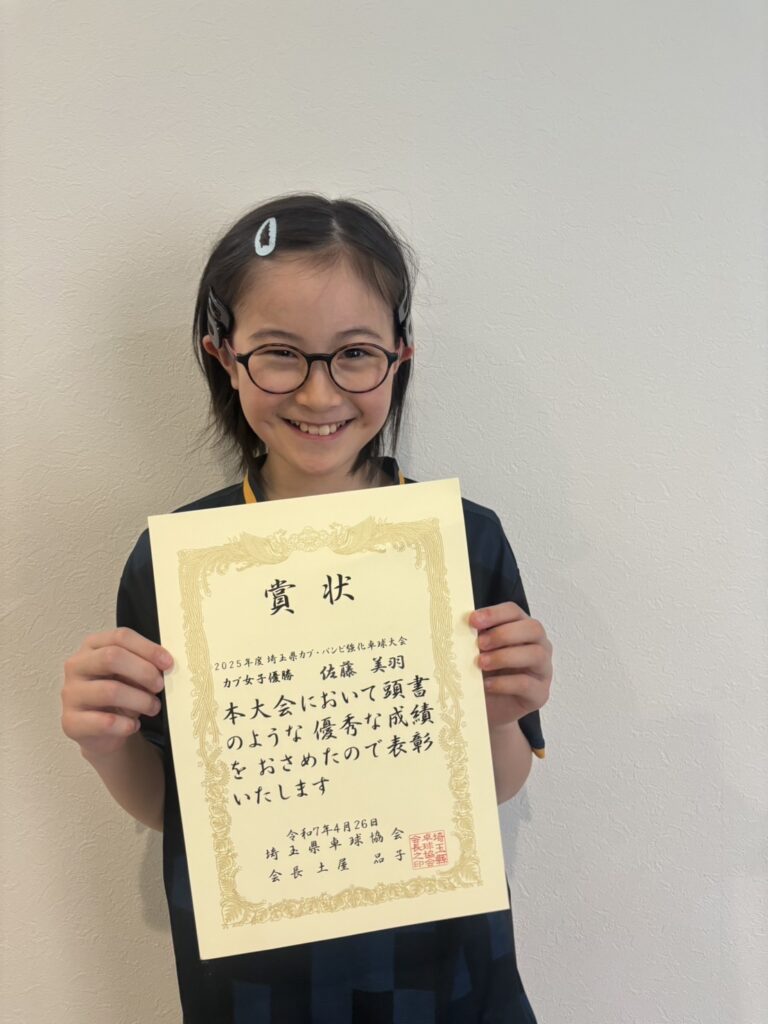 賞状
2025年度 埼玉県カブ・バンビ強化卓球大会
カブ女子優勝 佐藤 美羽
本大会において頭書
のような優秀な成績
をおさめたので表彰
いたします
令和7年4月26日
埼玉県卓球協会
会長 土屋 品子
埼玉縣
卓球協會
会長之印